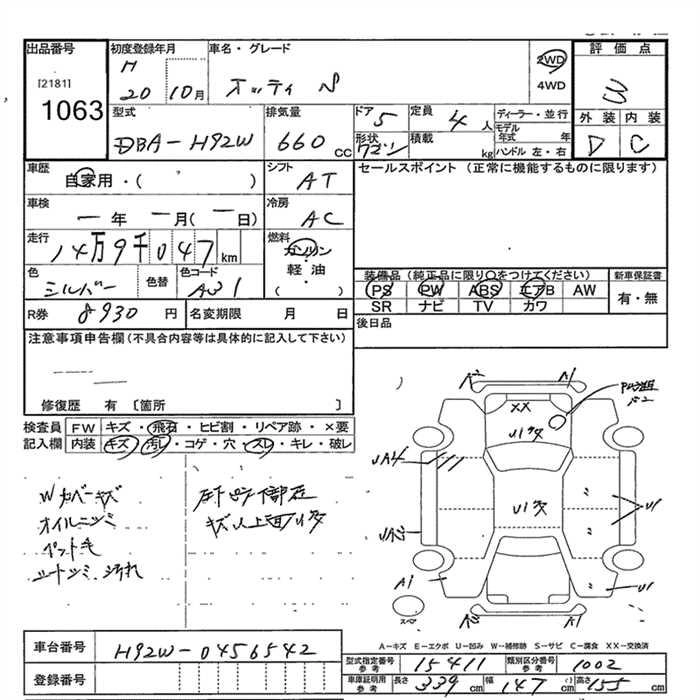 出品番号
[2181]
1063
初度登録年月
H
20 10月
車名・グレード
オッティ S
2WD
4WD
評価点
3
外装 内装
D C
型式
DBA-H92W
排気量
660 cc
ドア 5
定員 4人
形状
ワゴン
積載 kg
ディーラー・並行
モデル年式 年
ハンドル 左・右
車歴
自家用・( )
シフト
AT
セールスポイント (正常に機能するものに限ります)
車検
一年 一月(一日)
冷房
AC
走行
14万9千047 km
燃料
ガソリン・
軽油・
( )
色
シルバー
色替
色コード
A31
装備品 (純正品に限り○をつけてください)
PS PW ABS エアB AW
SR ナビ TV カワ
新車保証書
有・無
R券 8930 円
名変期限 月 日
後日品
注意事項申告欄 (不具合内容等は具体的に記入して下さい)
修復歴 有 [箇所 ]
検査員記入欄
FW キズ・飛石・ヒビ割・リペア跡・×要
内装 キズ・汚れ・コゲ・穴・スレ・キレ・破レ
オイルニジミ
ペット毛
シートシミ・汚れ
A1
XX
U1
U1
U1
A1
U1
A1
スペア
A-キズ E-エクボ U-凹み W-補修跡 S-サビ C-腐食 XX-交換済
車台番号
H92W-0456542
登録番号
型式指定番号 参考
15411
類別区分番号 参考
1002
車庫証明用 参考
長さ 339 cm
幅 147 cm
高さ 155 cm